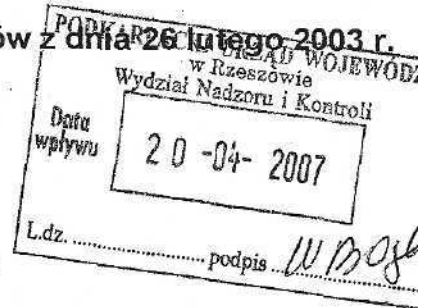 ów z dnia 26 lutego 2003 r.
PODKARPACKI URZĄD WOJEWÓDZ
w Rzeszowie
Wydział Nadzoru i Kontroli
Data
wpływu
20 -04- 2007
L.dz. .................... podpis